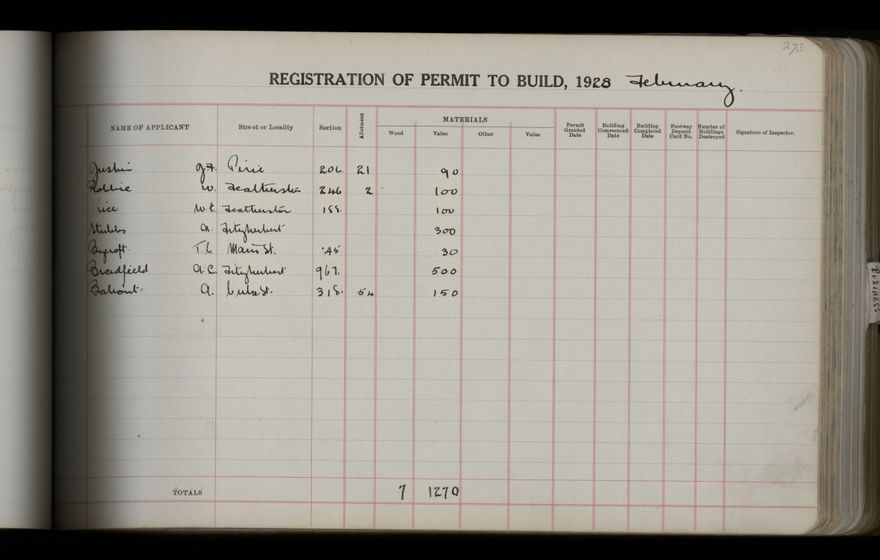 273
REGISTRATION OF PERMIT TO BUILD, 1928 February.
NAME OF APPLICANT Street or Locality Section Allotment MATERIALS Wood Value Other Value Permit Granted Date Building Commenced Date Building Completed Date Footway Deposit Card No. Number of Buildings Destroyed Signature of Inspector.
Pirie 206. 21 90
Robbie W. Featherston 246 2 100
W.E. Featherston 100
Stubbs A. Fitzherbert 300
Bycroft. Main St. 30
Broadfield A.C. Fitzherbert 967. 500
A. Cuba St. 318. 54 150
TOTALS 7 1270